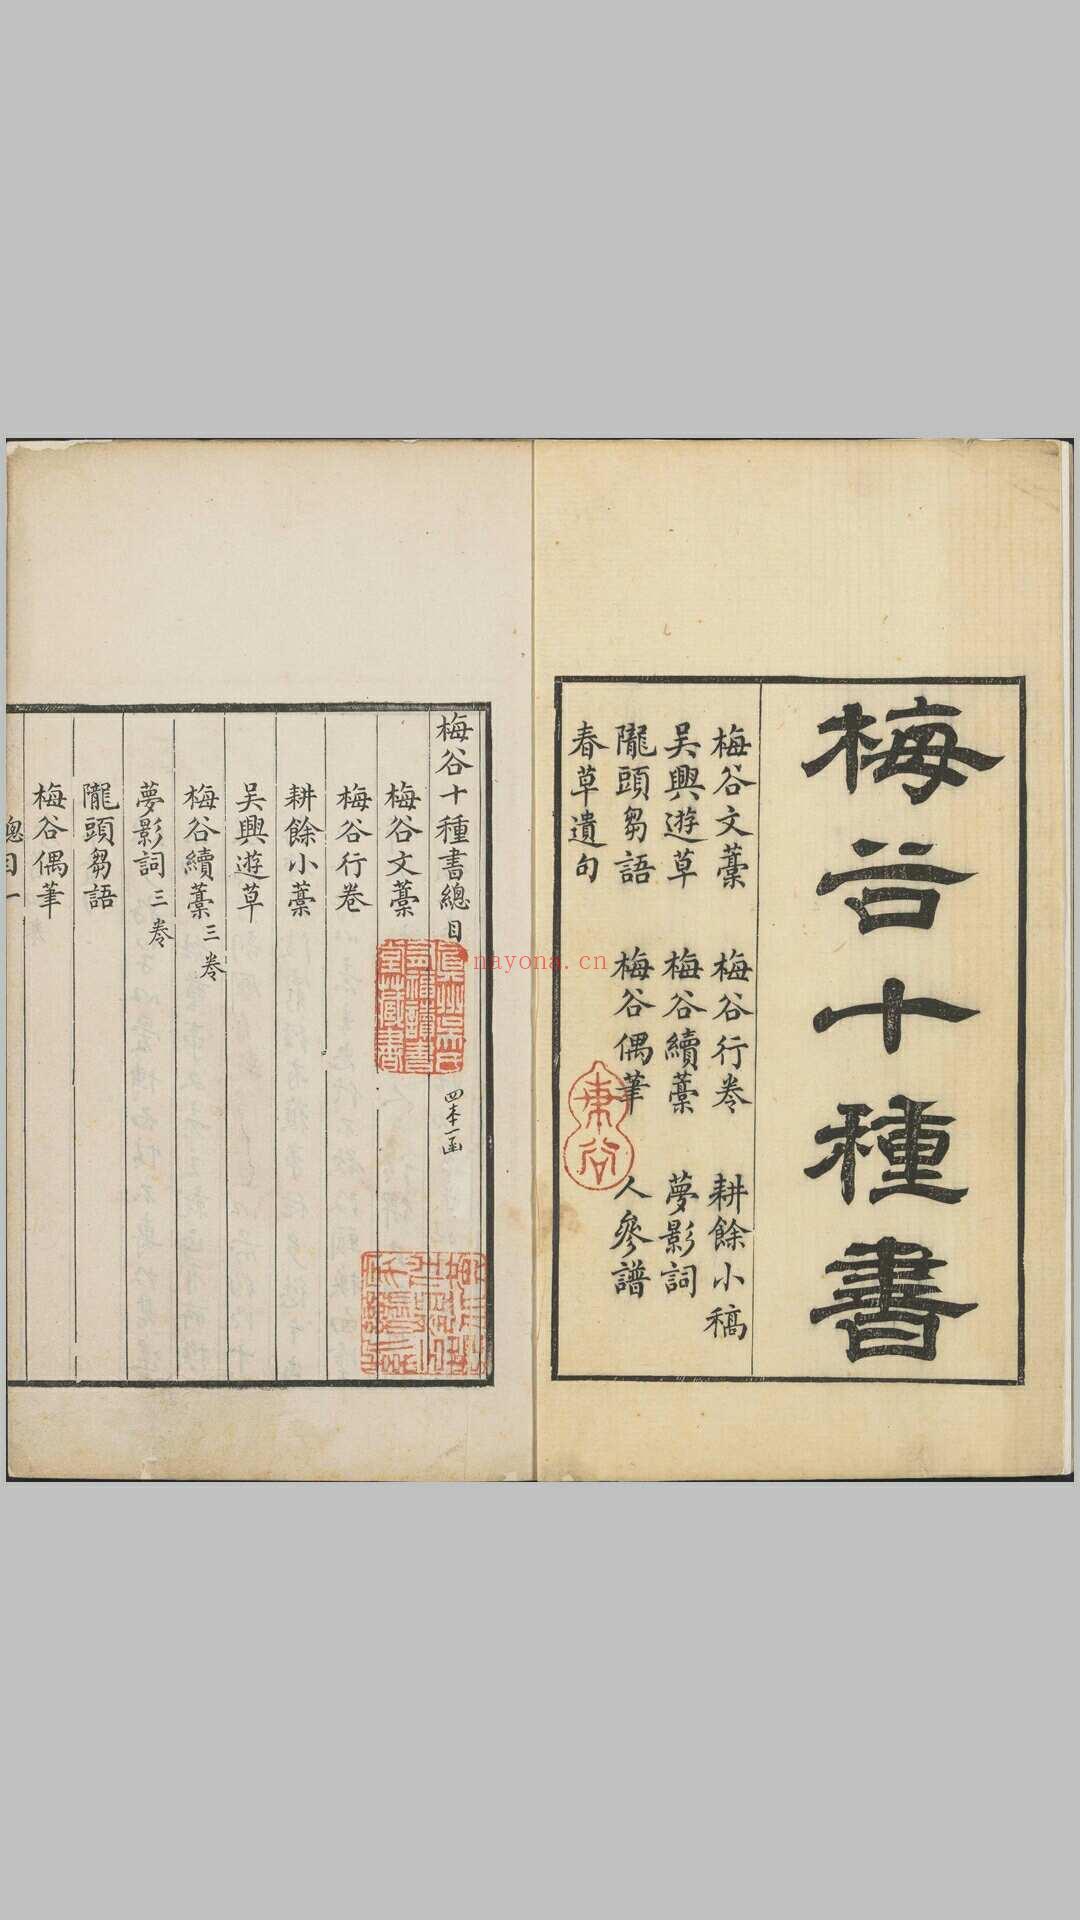 梅谷十種書
梅谷文藁 梅谷行卷 耕餘小稿
吴興遊草 梅谷續藁 夢影詞
隴頭芻語 梅谷偶筆 人參譜
春草遺句
梅谷十種書總目
四本一函
梅谷文藁
梅谷行卷
耕餘小藁
吴興遊草
梅谷續藁三卷
夢影詞三卷
隴頭芻語
梅谷偶筆
總目一
真州吳氏
有福讀書
堂藏書
nayona.cn